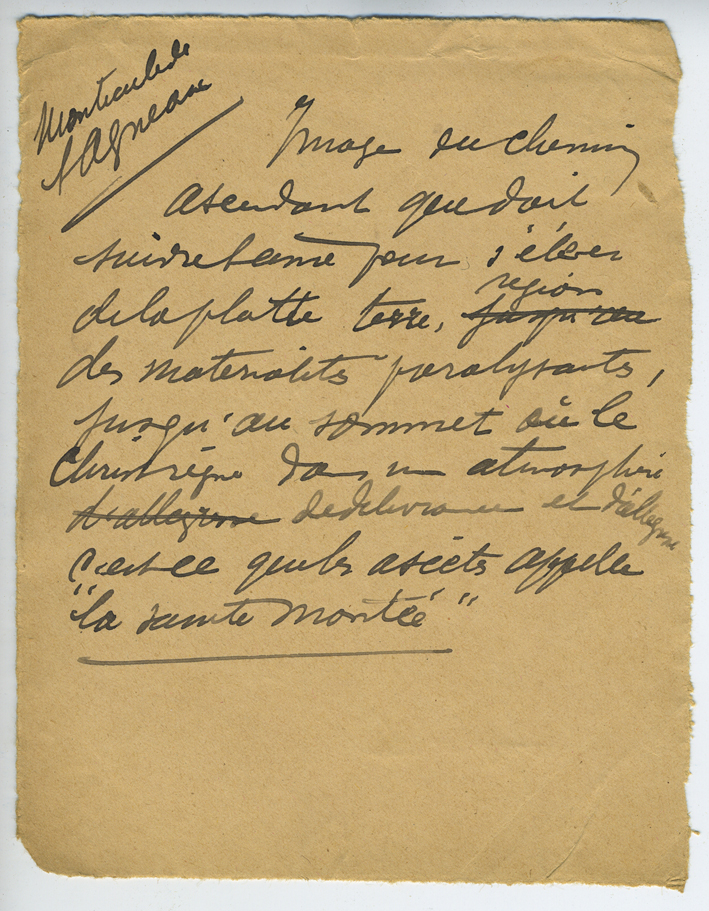 Monticule de
l'Agneau
Image du chemin
ascendant que doit
suivre l'âme pour s'élever
région
de la platte terre, jusqu'au
des materialités paralysants,
jusqu'au sommet où le
Christ règne dans un atmosphère
d'allegresse de délivrance et d'allegresse
c'est ce que les ascéts appelle
"la sainte montéé"